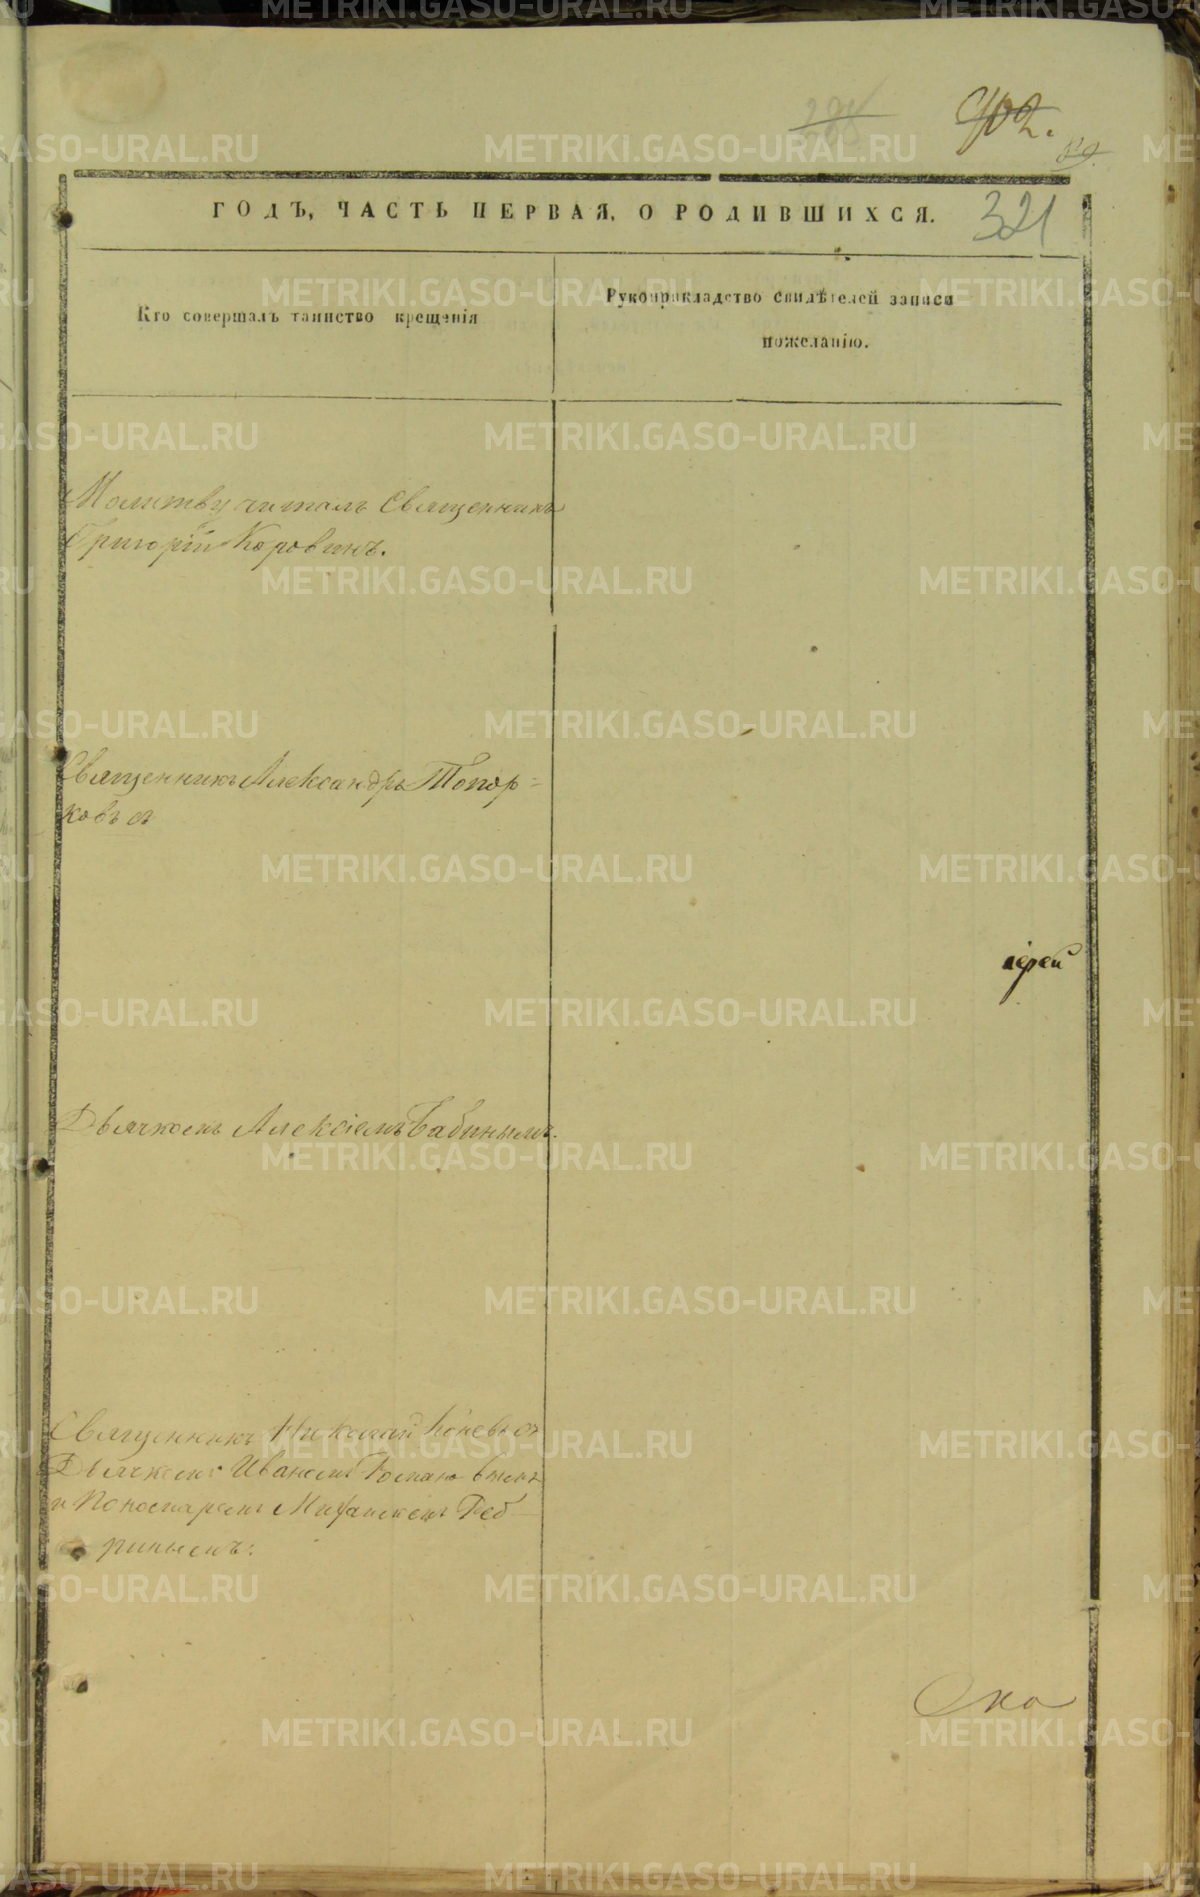 402.
89.
321
ГОДЪ, ЧАСТЬ ПЕРВАЯ, О РОДИВШИХСЯ.
Кто совершалъ таинство крещенія
Рукоприкладство свидѣтелей записи
пожеланію.
Молитву читалъ Священникъ
Григорій Коровинъ.
Священникъ Александръ Топор=
ковъ съ
іерей
Дьячкомъ Алексіемъ Бабинымъ.
Священникъ Николай Коневъ съ
Дьячкомъ Иваномъ
и Пономаремъ
METRIKI.GASO-URAL.RU